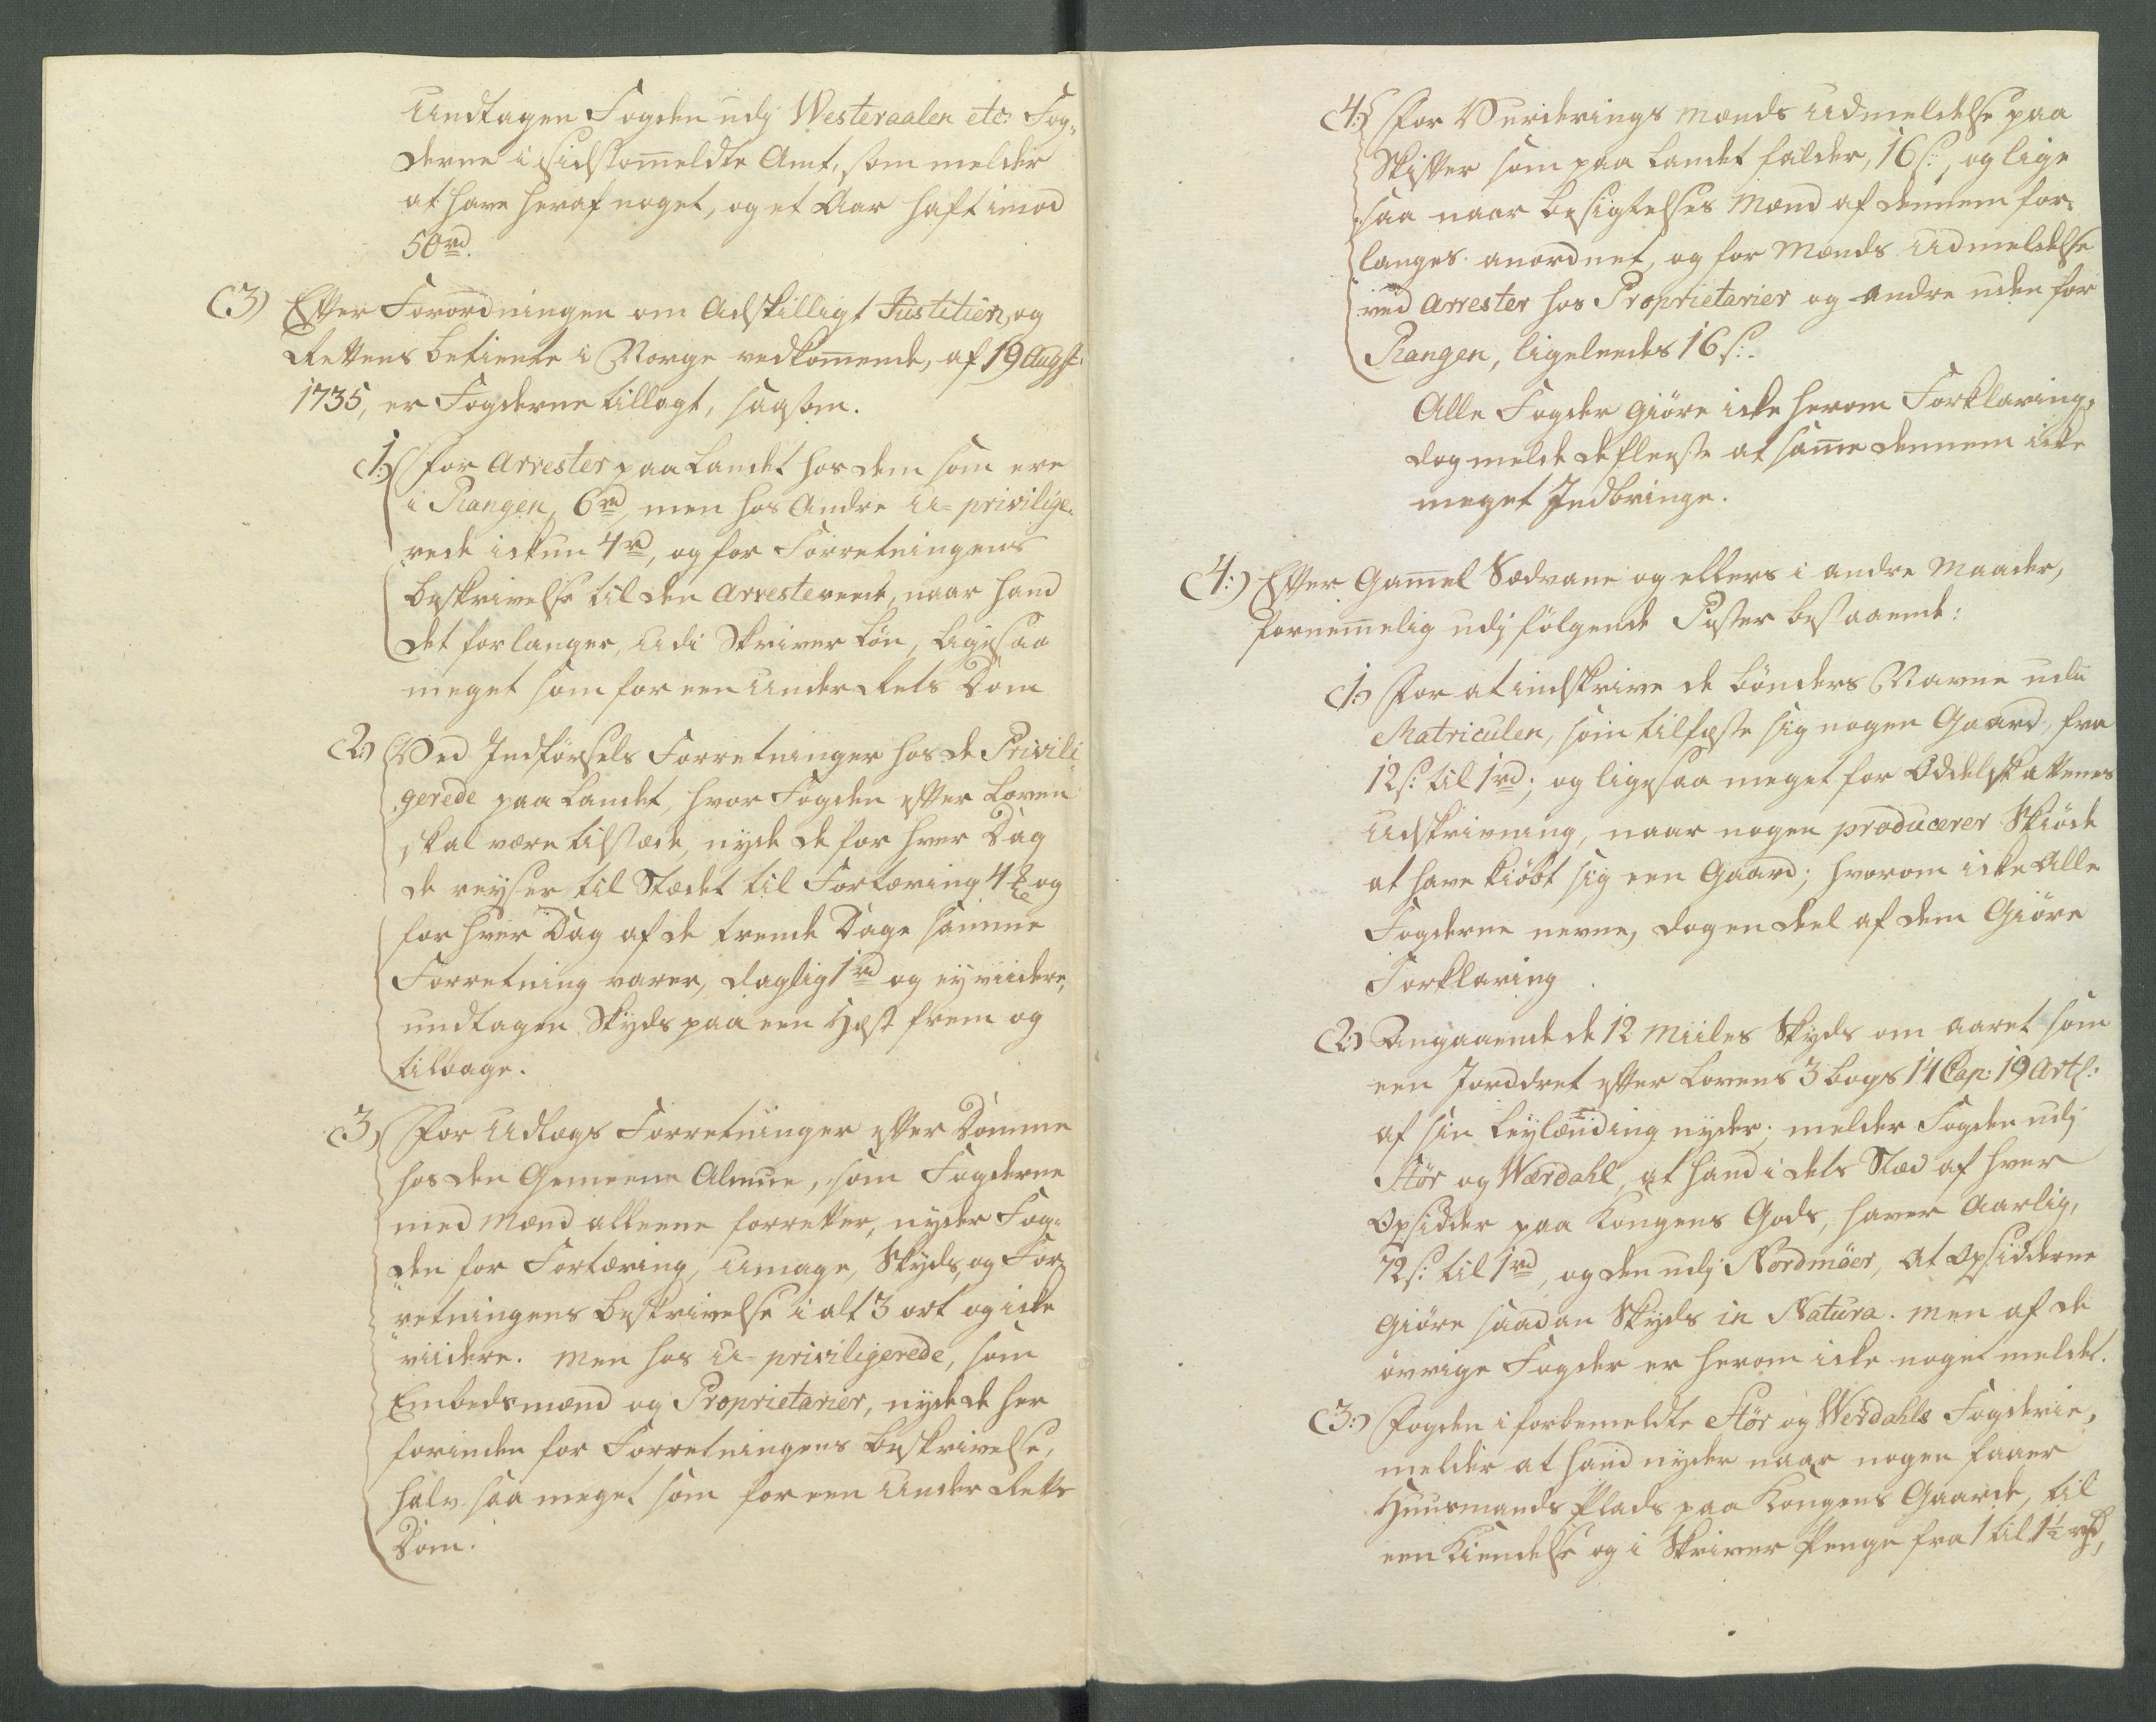 Undtagen Fogden udj Westeraalen etc: Fog„
derne i sidstom̅eldte Amt, som melder
at have heraf noget, og et Aar haft imod
50rd.
(3) Efter Forordningen om Adskilligt Justitien, og
Rettens betiente i Norge vedkom̅ende, af 19 Augst:
1735, er Fogderne tillagt, saasom.
(1:) For Arrester paa Landet hos dem som ere
i Rangen, 6rd, men hos Andre u-privilige„
rede ickun 4rd, og for Forretningens
beskrivelse til den Arresterende, naar hand
det forlanger, udi Skriver løn, ligesaa
meget som for een Under Rets Dom
(2:) Ved Indførsels Forretninger hos de Privili„
gerede paa Landet, hvor Fogden efter Loven
skal være tilstæde, nyde de for hver Dag
de reyser til Stædet til Fortæring 4 ℔ og
for hver Dag af de trende Dage samme
Forretning varer, daglig 1rd og ey viidere,
undtagen Skyds paa een Hest frem og
tilbage.
(3) For Udlægs Forretninger efter Domme
hos den Gemeene Almue, som Fogderne
med Mænd alleene forretter, nyder Fog„
den for Fortæring, Umage, Skyds, og For„
retningens beskrivelse i alt 3 ort og icke
viidere. Men hos u-priviligerede, som
Embedsmænd og Proprietarier, nyde de her
forinden for Forretningens beskrivelse,
halv saa meget som for een Under Retts
Dom.
(4:) For Vurderings Mænds Udmeldelse paa
Skifter som paa Landet falder, 16 s:, og lige
saa naar besigtelses Mænd af dennem for„
langes anordnet, og for Mænds Udmeldelse
ved Arrester hos Proprietarier og andre uden for
Rangen, ligeleedes 16 s:.
Alle Fogder giøre icke herom Forklaring,
dog melde de fleeste at sam̅e dennem icke
meget Indbringe.
(4:) Efter Gam̅el Sædvane og ellers i andre Maader,
fornem̅elig udj følgende Poster bestaaende:
(1:) For at indskrive de bønders Navne udi
Matriculen, som tilfæste sig nogen Gaard, fra
12 s: til 1rd; og ligesaa meget for Oddelskattenes
Udskrivning, naar nogen producerer Skiøde
at have kiøbt sig een Gaard; hvorom icke Alle
Fogderne nevne, dog en deel af dem Giøre
Forklaring.
(2:) Angaaende de 12 Miiles Skyds om Aaret som
een Jorddrot efter Lovens 3 bogs 14 Cap: 19 Artl:
af sin Leylænding nyder; melder Fogden udj
Stør og Værdahl, at hand i dets Stæd af hver
Opsidder paa Kongens Gods, haver Aarlig,
72 s: til 1rd, og den udj Nordmöer, At Opsidderne
giøre saadan Skyds in Natura. men af de
övrige Fogder er herom icke noget meldet.
(3:) Fogden i forbemeldte Stør og Werdahls Fogderie,
melder at hand nyder naar nogen faaer
Huusmands Plads paa Kongens Gaarde, til
een Kiendelse og i Skriver Penge fra 1 til 1½ rd,